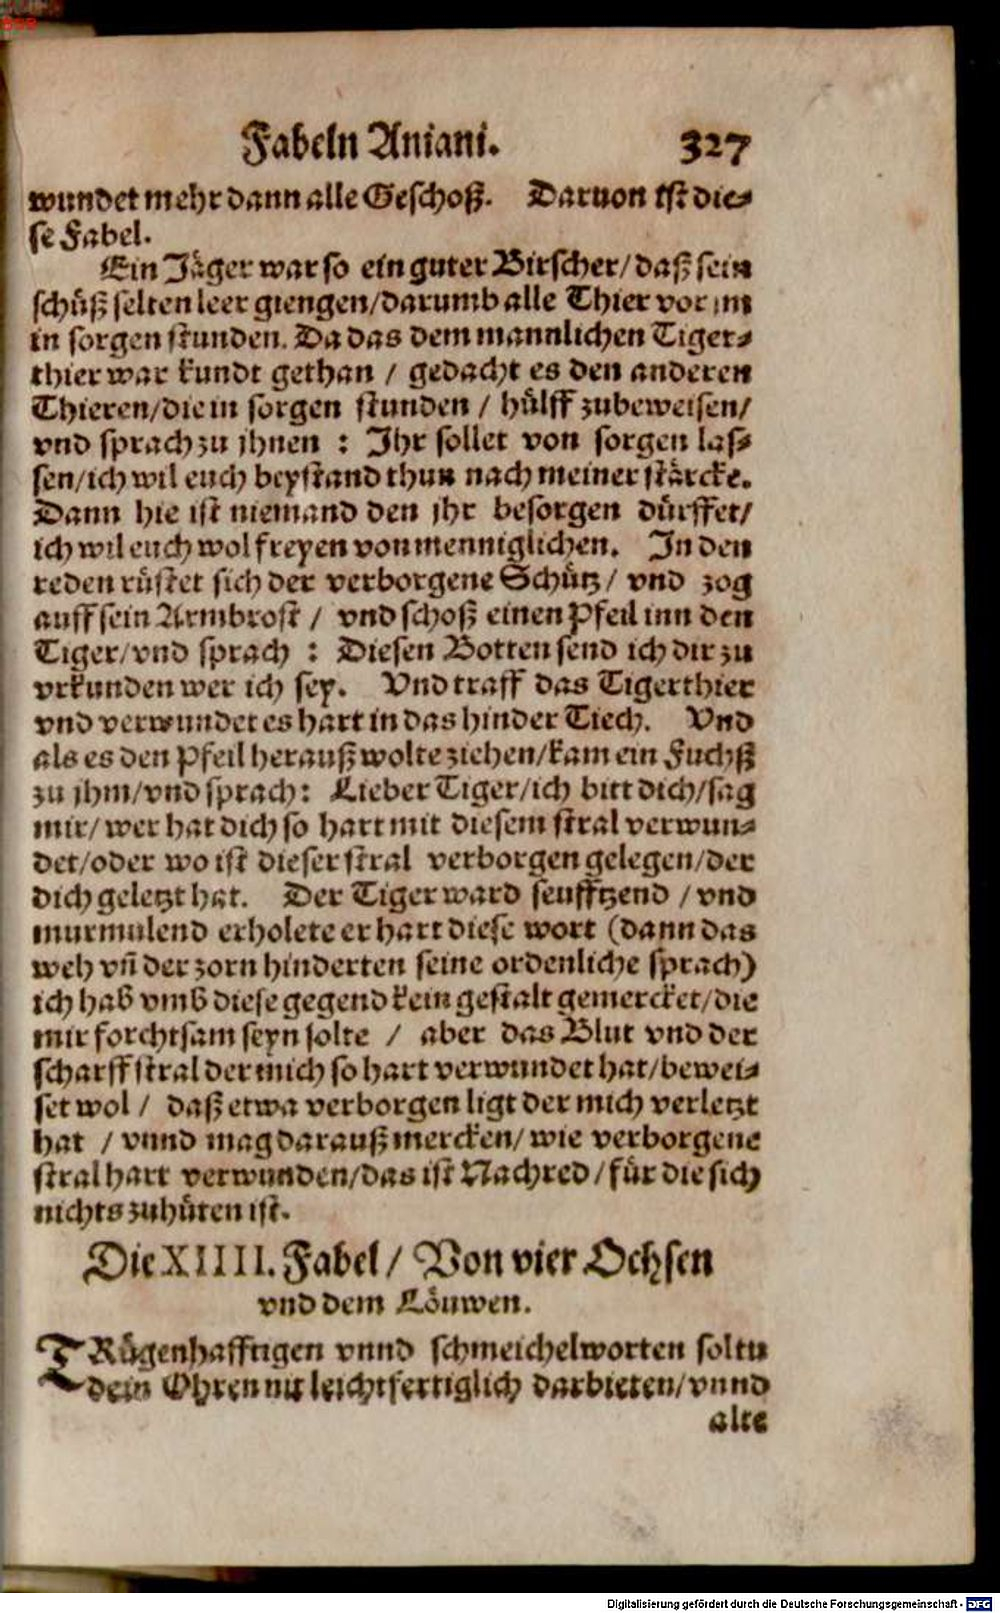 Fabeln Aniani. 327
wundet mehr dann alle Geschoß. Daruon ist die⸗
se Fabel.
Ein Jäger war so ein guter Birscher/daß sein
schüß selten leer giengen/darumb alle Thier vor im
in sorgen stunden. Da das dem mannlichen Tiger⸗
thier war kundt gethan / gedacht es den anderen
Thieren/die in sorgen stunden / hülff zubeweisen/
vnd sprach zu jhnen : Jhr sollet von sorgen las⸗
sen/ich wil euch beystand thun nach meiner stärcke.
Dann hie ist niemand den jhr besorgen dürffet/
ich wil euch wol freyen von menniglichen. In den
reden rüstet sich der verborgene Schütz/ vnd zog
auff sein Armbrost / vnd schoß einen Pfeil inn den
Tiger/vnd sprach : Diesen Botten send ich dir zu
vrkunden wer ich sey. Vnd traff das Tigerthier
vnd verwundet es hart in das hinder Tiech. Vnd
als es den Pfeil herauß wolte ziehen/kam ein Fuchß
zu jhm/vnd sprach: Lieber Tiger/ich bitt dich/sag
mir/ wer hat dich so hart mit diesem stral verwun⸗
det/oder wo ist dieser stral verborgen gelegen/der
dich geletzt hat. Der Tiger ward seufftzend / vnd
murmulend erholete er hart diese wort (dann das
weh vñ der zorn hinderten seine ordenliche sprach)
ich hab vmb diese gegend kein gestalt gemercket/die
mir forchtsam seyn solte / aber das Blut vnd der
scharff stral der mich so hart verwundet hat/bewei⸗
set wol / daß etwa verborgen ligt der mich verletzt
hat / vnnd mag darauß mercken/ wie verborgene
stral hart verwunden/das ist Nachred/für die sich
nichts zuhüten ist.
Die XIIII. Fabel/ Von vier Ochsen
vnd dem Löuwen.
TRügenhafftigen vnnd schmeichelworten soltu
dein Ohren nit leichtfertiglich darbieten/vnnd
alte
Digitalisierung gefördert durch die Deutsche Forschungsgemeinschaft - DFG